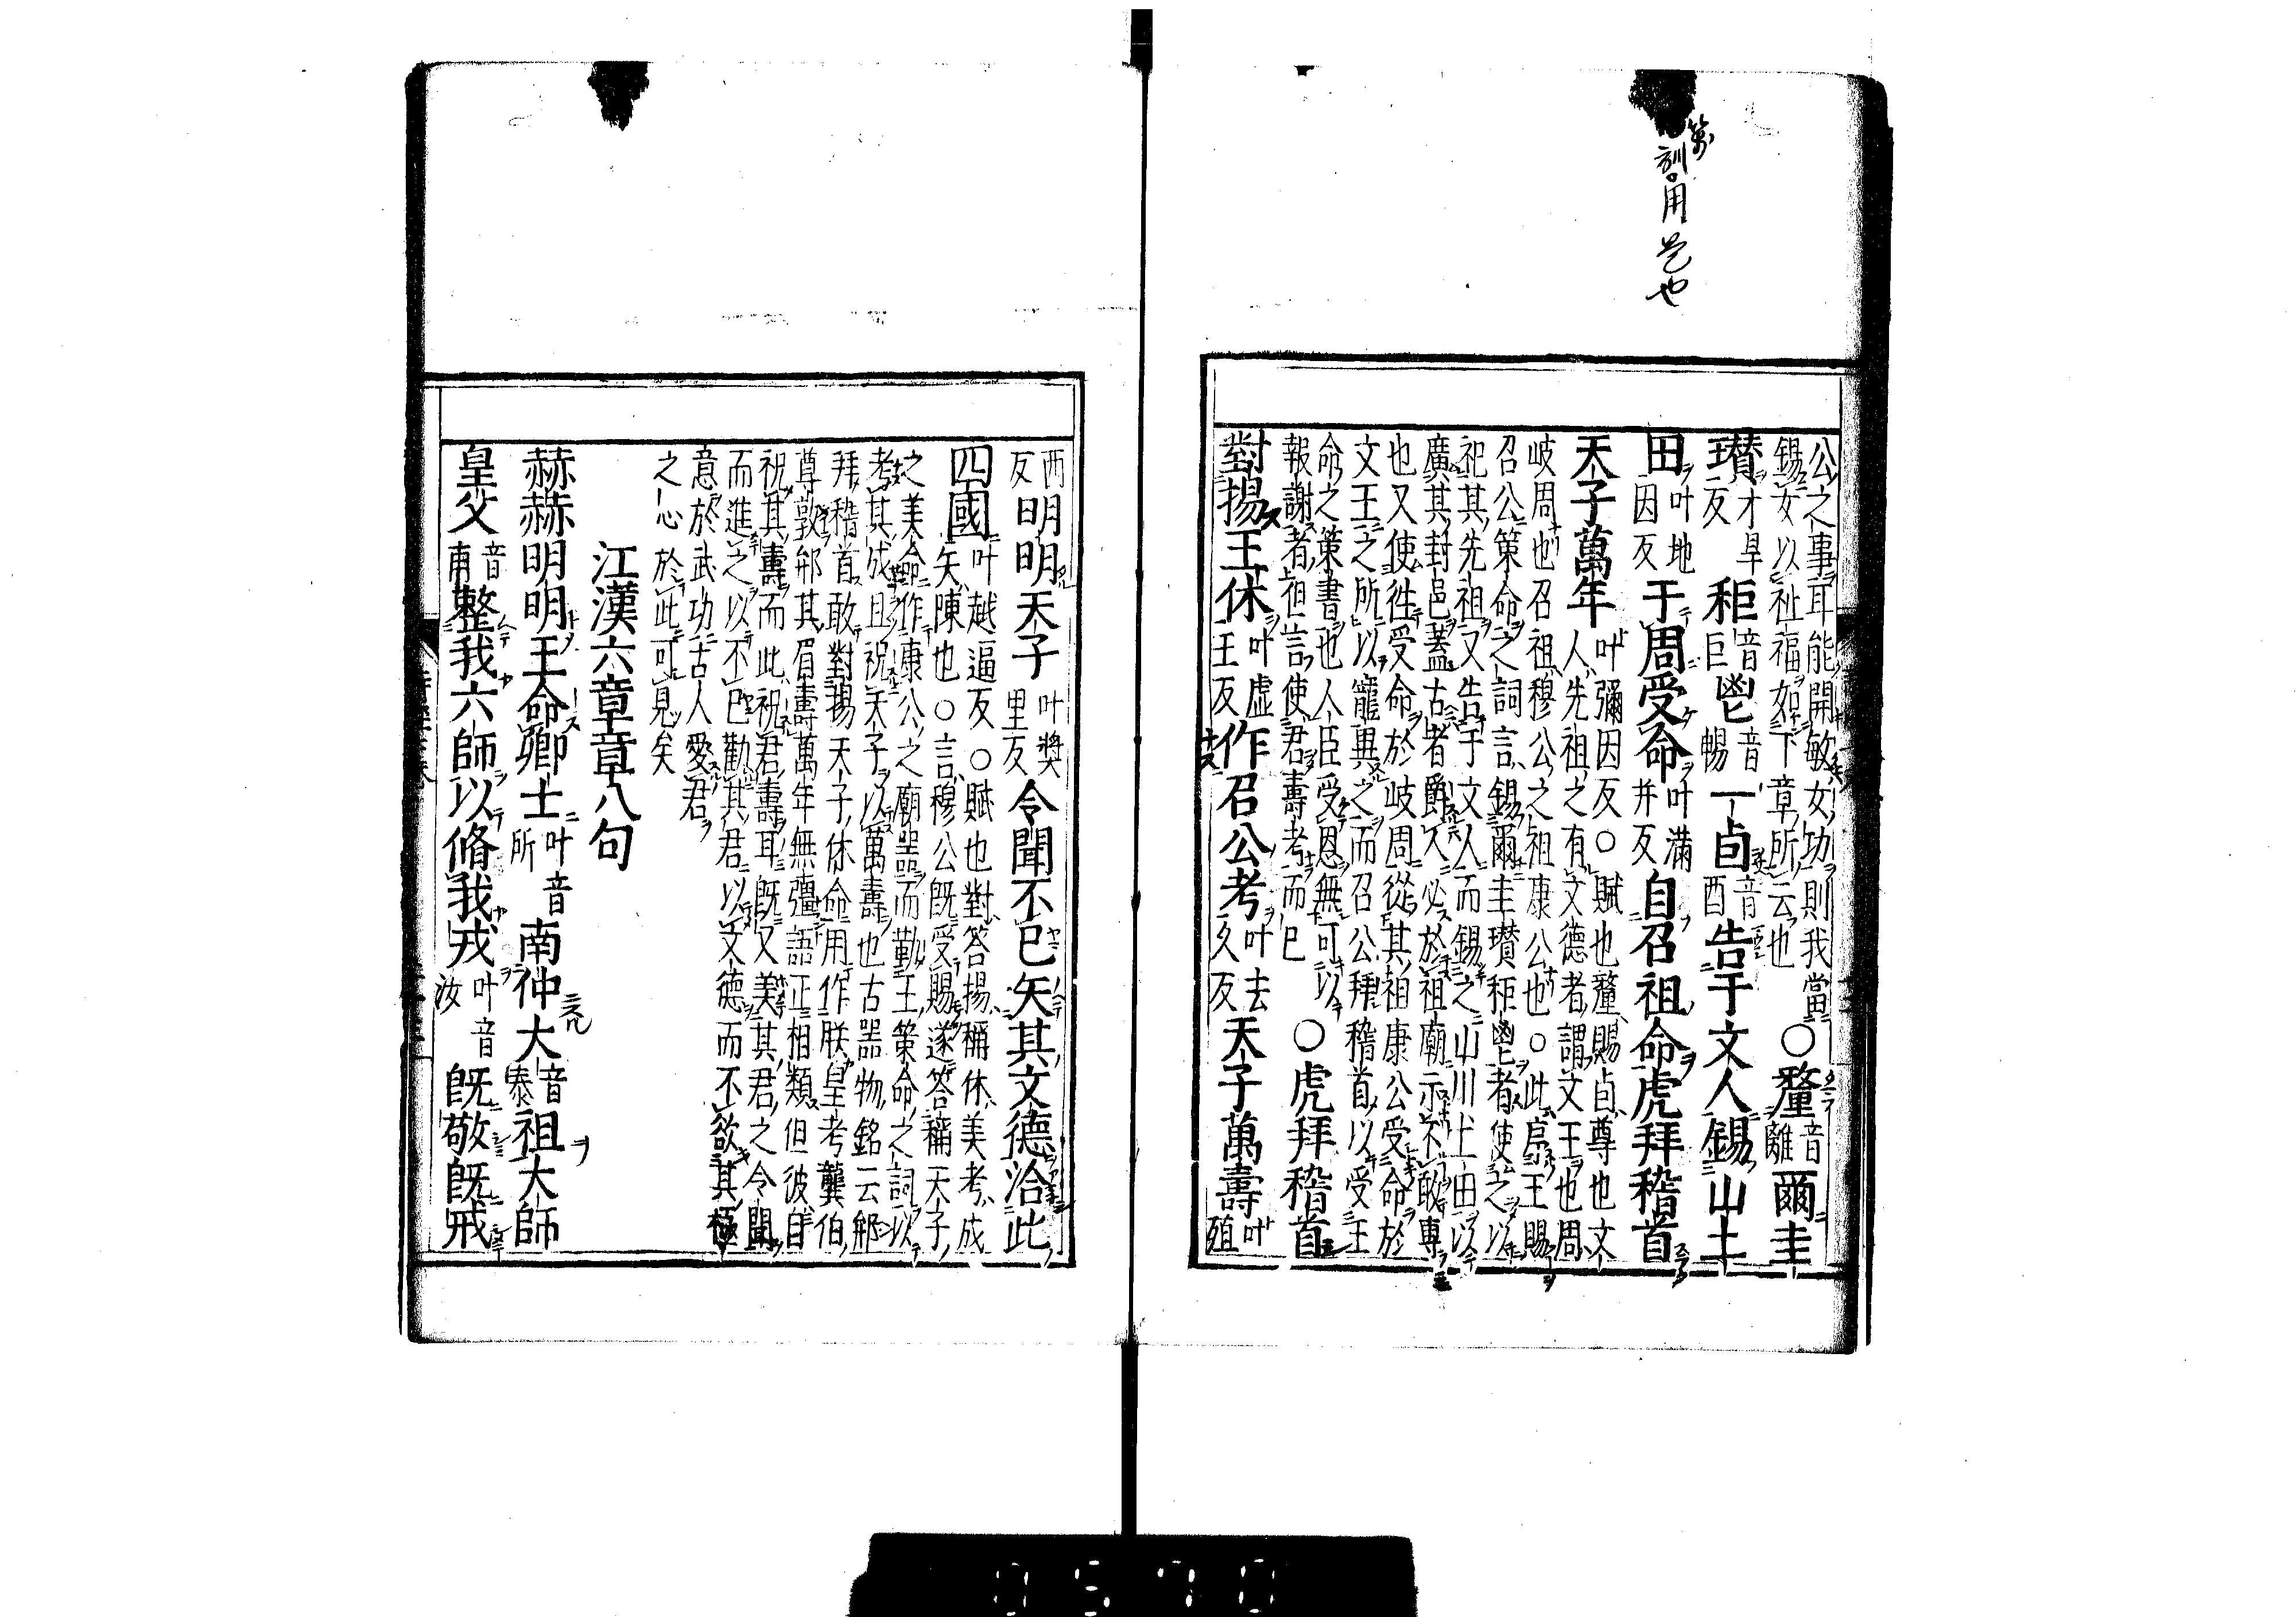 公之事耳能開敏女功則我當
錫女以祉福如下章所云也
○釐音離爾圭
瓚才旱反秬音巨鬯音暢一卣音酉告于文人錫山土
田叶地因反于周受命叶滿并反自召祖命虎拜稽首
天子萬年叶彌因反○賦也釐賜卣尊也文
人先祖之有文德者謂文王也周
岐周也召祖穆公之祖康公也○此序王賜
召公策命之詞言錫爾圭瓚秬鬯者使之以
祀其先祖又告于文人而錫之山川土田以
廣其封邑蓋古者爵人必於祖廟示不敢專
也又使往受命於岐周從其祖康公受命於
文王之所以寵異之而召公拜稽首以受王
命之策書也人臣受恩無可以
報謝者但言使君壽考而已
○虎拜稽首
對揚王休叶虛王反作召公考叶去久反天子萬壽叶殖
西反明明天子叶獎里反令聞不已矢其文德洽此
四國叶越逼反○賦也對答揚稱休美考成
矢陳也○言穆公既受賜遂答稱天子
之美命作康公之廟器而勒王策命之詞以
考其成且祝天子以萬壽也古器物銘云郱
拜稽首敢對揚天子休命用作朕皇考龔伯
尊敦郱其眉壽萬年無彊語正相類但彼自
祝其壽而此祝君壽耳既又美其君之令聞
而進之以不已勸其君以文德而不欲其極
意於武功古人愛君
之心於此可見矣
江漢六章章八句
赫赫明明王命卿士叶音所南仲大音泰祖大師
皇父音甫整我六師以脩我戎叶音汝既敬既戒
訓用是也
0570